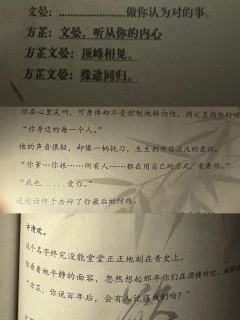 文晏：......................做你认为对的事。
方芷：文晏，听从你的内心
方芷文晏：顶峰相见。
方芷文晏：殊途同归。
你在心里尖叫，可身体却不受控制地转向他，剑尖直指他的咽
“你身边的每一个人。”
他的声音很轻，却像一柄钝刀，生生剖开你混沌的意识。
“你爹…你娘……所有人……都在用自己的方式，爱着你。”
“我也……爱你。”
这句话终于击碎了你最后的防线。
许清欢。
这个名字终究没能堂堂正正地刻在青史上。
你看着她平静的面容，忽然想起那年你们在酒楼对饮，她
“方芷，你说百年后，会有人记得我们吗？”